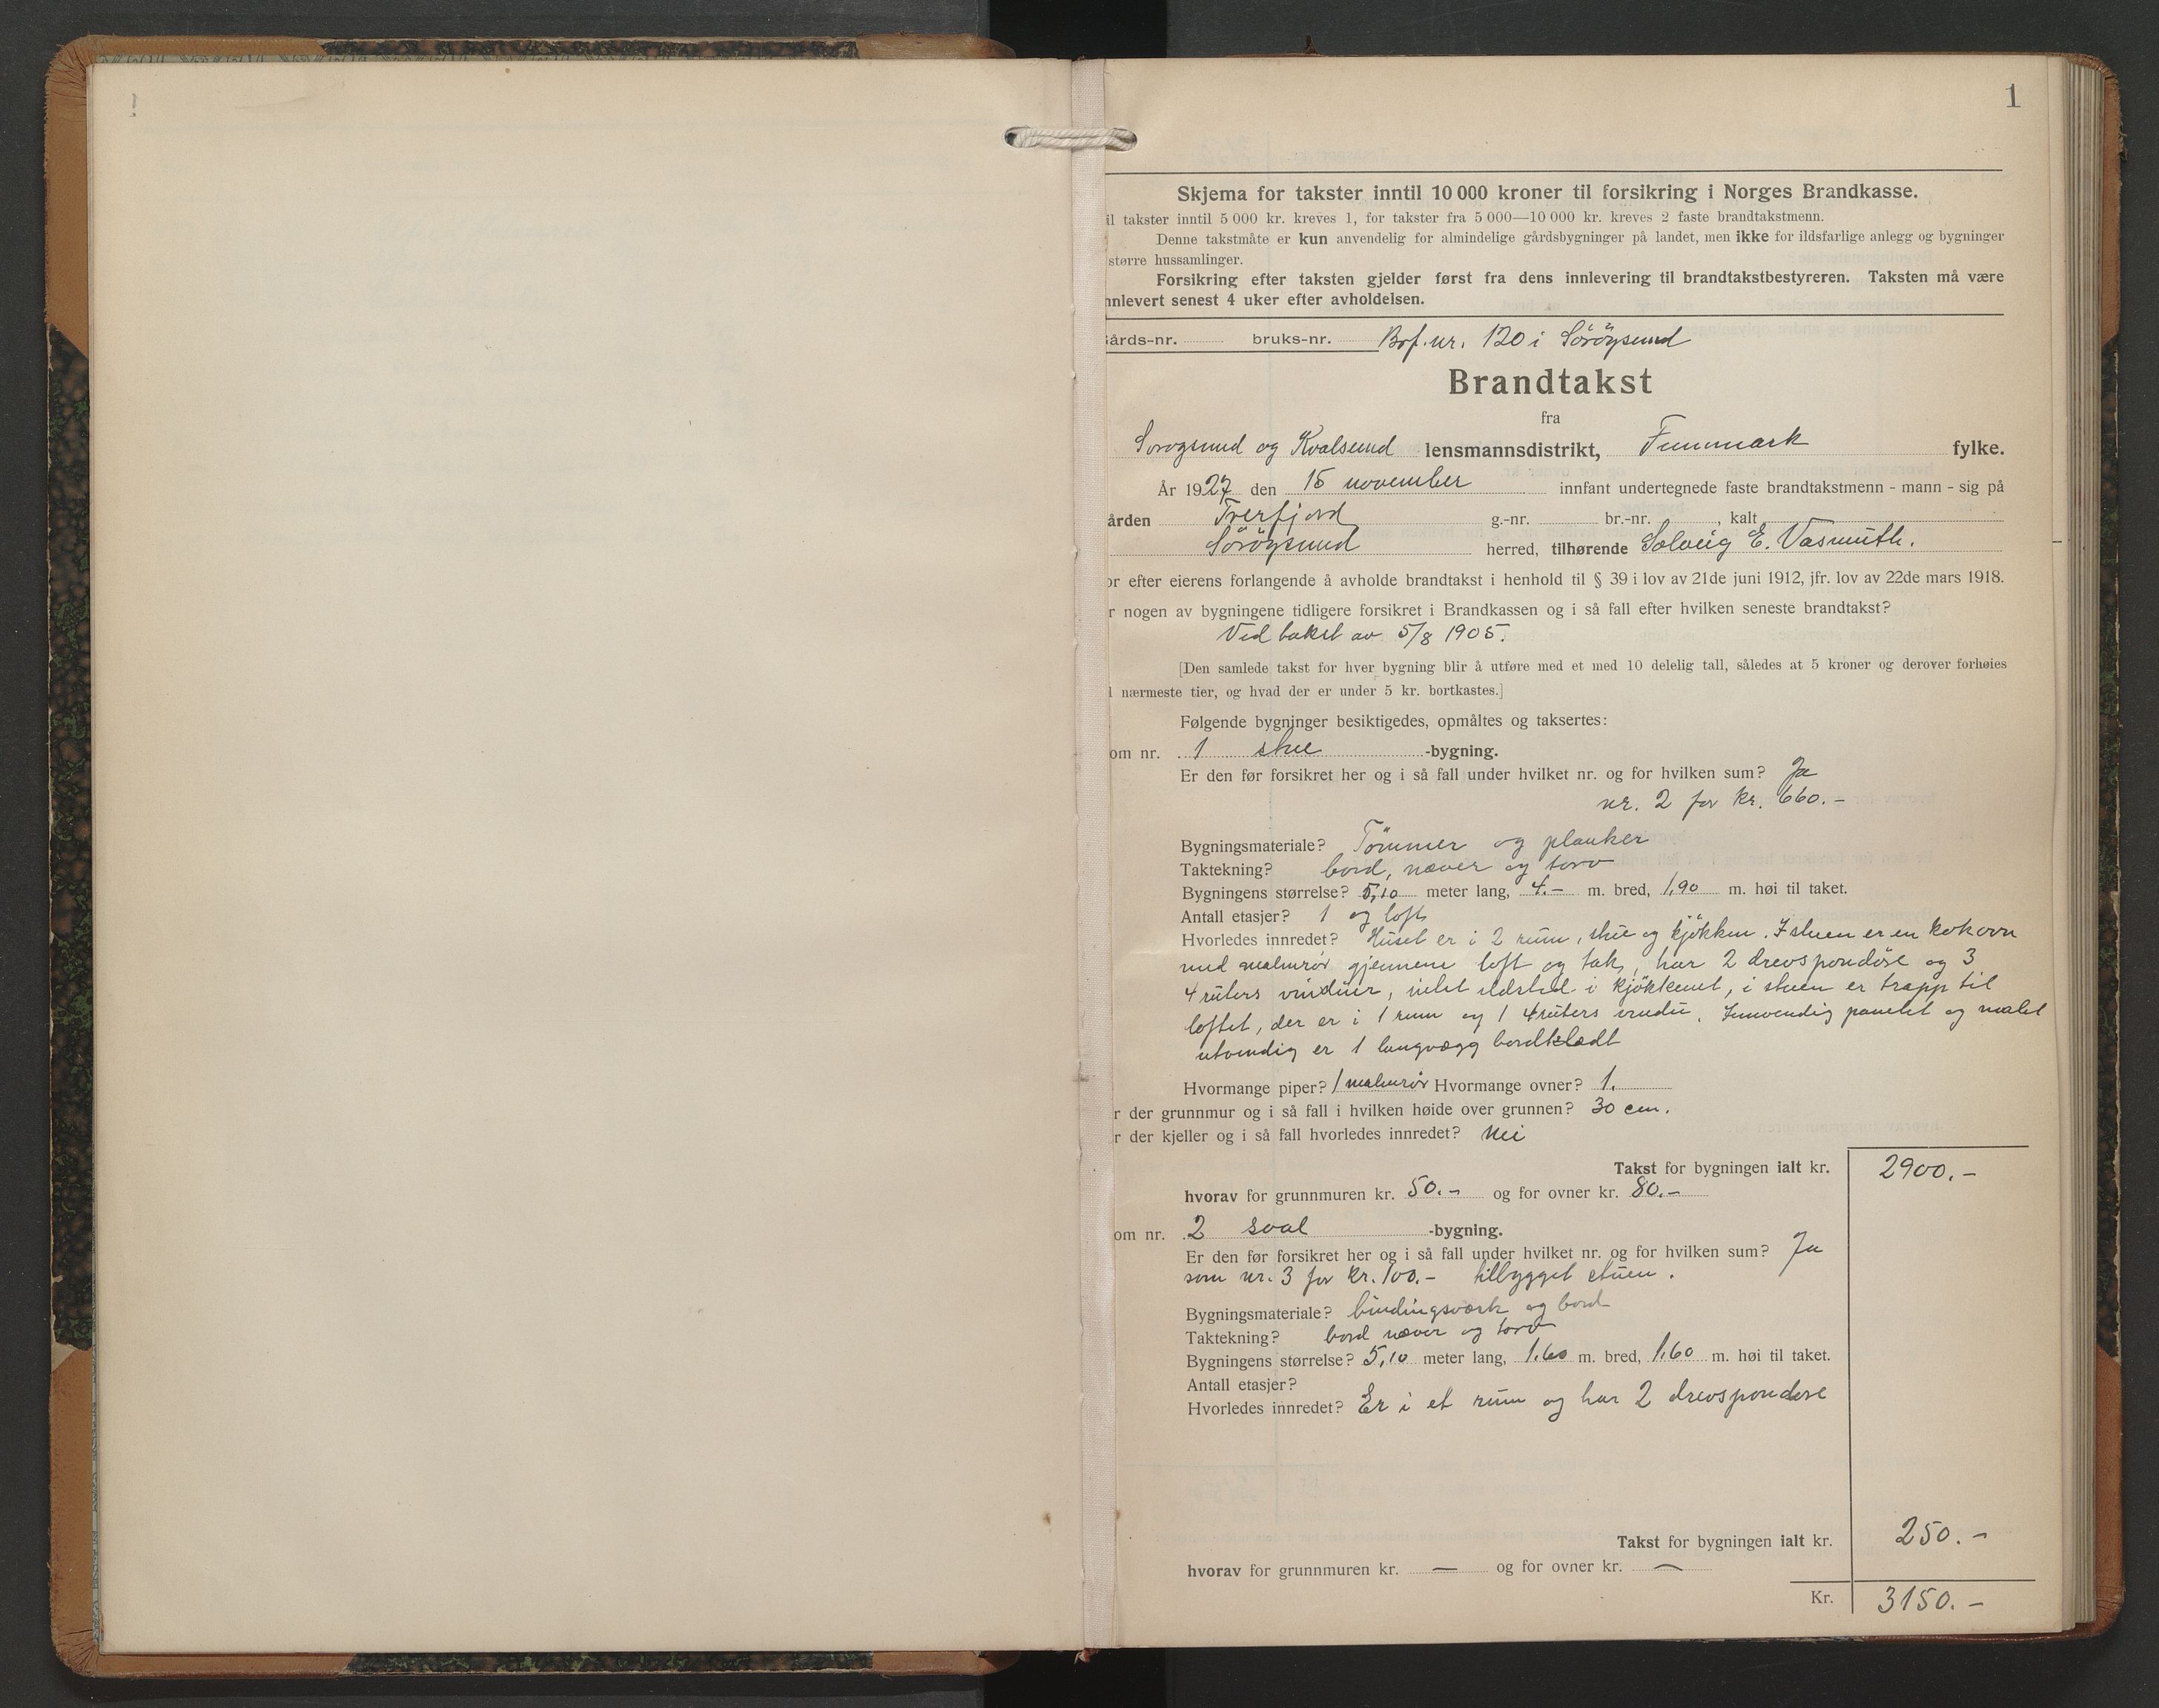 1
Skjema for takster inntil 10 000 kroner til forsikring i Norges Brandkasse.
il takster inntil 5 000 kr. kreves 1, for takster fra 5 000—10 000 kr. kreves 2 faste brandtakstmenn.
Denne takstmåte er kun anvendelig for almindelige gårdsbygninger på landet, men ikke for ildsfarlige anlegg og bygninger
større hussamlinger.
Forsikring efter taksten gjelder først fra dens innlevering til brandtakstbestyreren. Taksten må være
nnlevert senest 4 uker efter avholdelsen.
årds-nr. bruks-nr. Brf. nr. 120 i Söröysund
Brandtakst
fra
Sørøysund og Kvalsund lensmannsdistrikt, Finnmark fylke.
År 1927 den 15 november innfant undertegnede faste brandtakstmenn - mann - sig på
ården Tverfjord g.-nr. br.-nr. , kalt
Söröysund herred, tilhørende Solveig E. Vasmuth.
or efter eierens forlangende å avholde brandtakst i henhold til § 39 i lov av 21de juni 1912, jfr. lov av 22de mars 1918.
r nogen av bygningene tidligere forsikret i Brandkassen og i så fall efter hvilken seneste brandtakst?
Ved takst av 5/8 1905.
[Den samlede takst for hver bygning blir å utføre med et med 10 delelig tall, således at 5 kroner og derover forhøies
l nærmeste tier, og hvad der er under 5 kr. bortkastes.]
Følgende bygninger besiktigedes, opmåltes og taksertes:
om nr. 1 stue -bygning.
Er den før forsikret her og i så fall under hvilket nr. og for hvilken sum? Ja
nr. 2 for kr. 660.-
Bygningsmateriale? Tömmer og planker
Taktekning? bord, næver og torv
Bygningens størrelse? 5,10 meter lang, 4.- m. bred, 1,90 m. høi til taket.
Antall etasjer? 1 og loft
Hvorledes innredet? Huset er i 2 rum, stue og kjökken. I stuen er en kokovn
med malmrör gjennem loft og tak, har 2 drevspondöre og 3
4 ruters vinduer, intet ildsted i kjökkenet, i stuen er trapp til
loftet, der er i 1 rum og 1 4 ruters vindu. Innvendig panelet og malet
utvendig er 1 langvægg bordklædt
Hvormange piper? 1 malmrör Hvormange ovner? 1.
r der grunnmur og i så fall i hvilken høide over grunnen? 30 cm.
r der kjeller og i så fall hvorledes innredet? Nei
Takst for bygningen ialt kr. 2900.-
hvorav for grunnmuren kr. 50.- og for ovner kr. 80.-
om nr. 2 sval -bygning.
Er den før forsikret her og i så fall under hvilket nr. og for hvilken sum? Ja
som nr. 3 for kr. 100.- tilbygget stuen.
Bygningsmateriale? bindingsværk og bord
Taktekning? bord næver og torv
Bygningens størrelse? 5,10 meter lang, 1,60 m. bred, 1,60 m. høi til taket.
Antall etasjer?
Hvorledes innredet? Er i et rum og har 2 drevspondøre
Takst for bygningen ialt kr. 250.-
hvorav for grunnmuren kr. — og for ovner kr. —
Kr. 3150.-